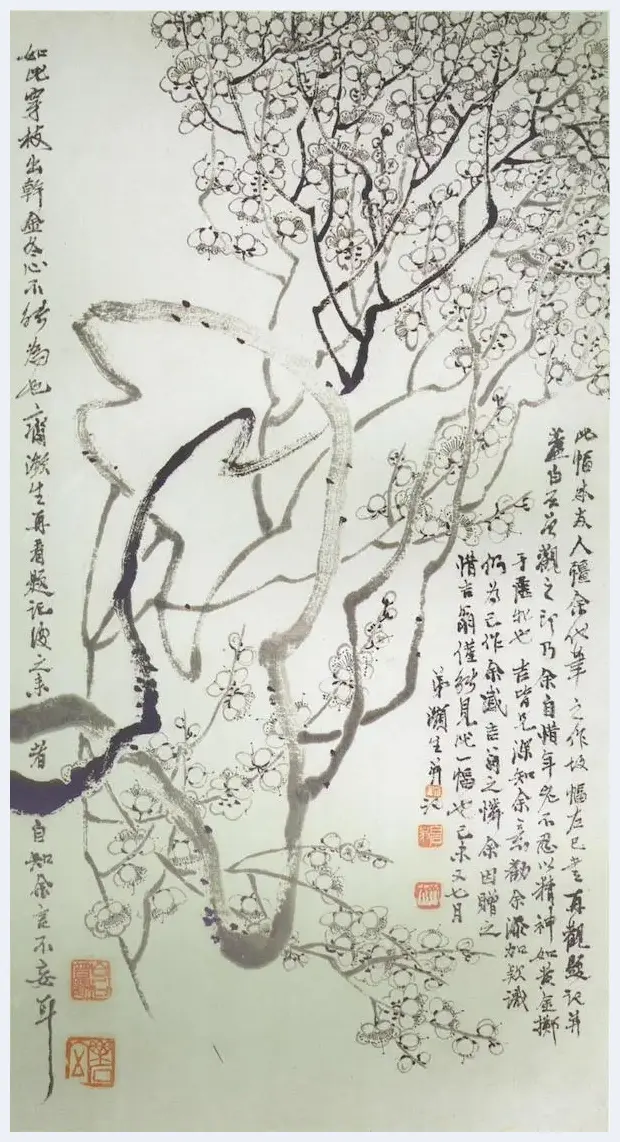 此幅本友人彊余代筆之作故幅左已書再觀題記并
蓋白石曾觀之印乃余自惜年老不忍以精神如黃金擲
于虛牝也吉皆兄深知余意勸余添加款識
仍為己作余感吉翁之憐余因贈之
惜吉翁僅能見此一幅也己未又七月
弟瀕生并記
如此穿枝出幹金冬心不能為也齊瀕生再看題記後之來者自知余言不妄耳